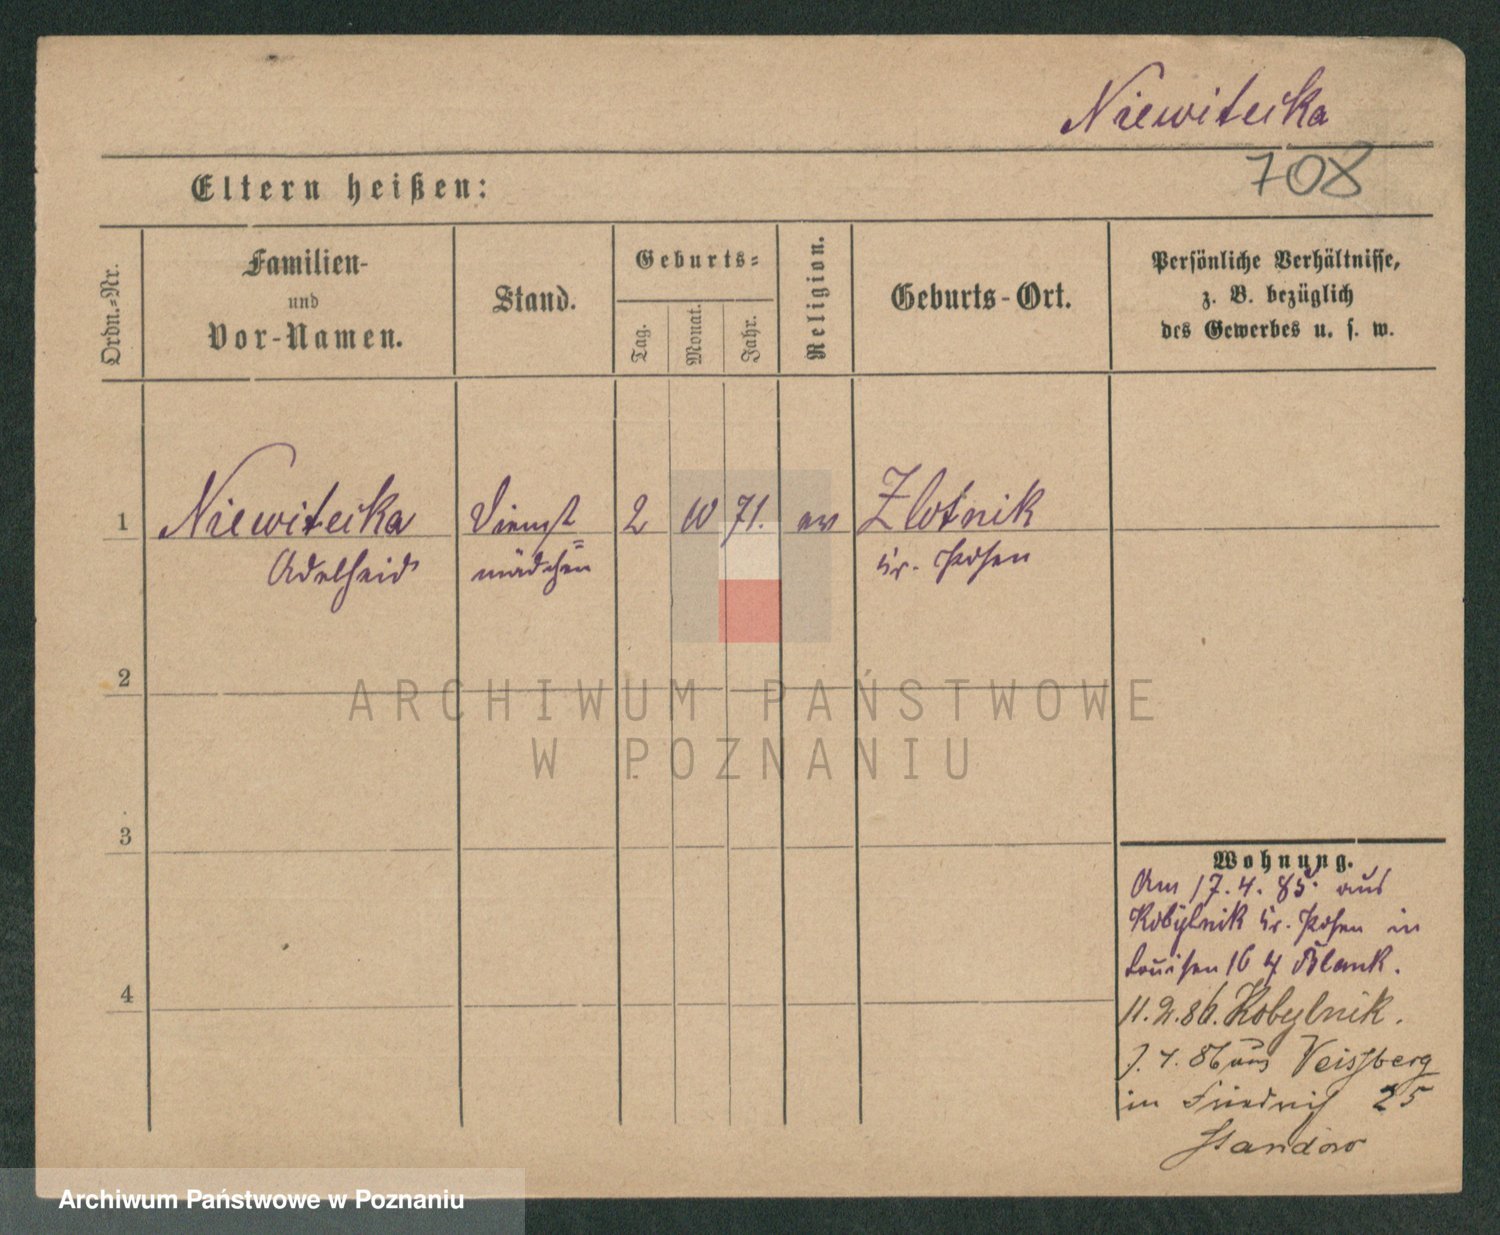 Niewitecka
708
Eltern heißen:
Ordn.-Nr.
Familien-
und
Vor-Namen.
Stand.
Geburts-
Tag.
Monat.
Jahr.
Religion.
Geburts-Ort.
Persönliche Verhältnisse,
z. B. bezüglich
des Gewerbes u. s. w.
1 Niewitecka Dienst 2 10 71. ev Zlotnik
Adelheid mädchen Kr. Posen
2
ARCHIWUM PAŃSTWOWE
W POZNANIU
3
Wohnung.
Am 17.4.85. aus
Kobylnik Kr. Posen in
Louisen 16 Blank.
4
11.2.86. Kobylnik.
4. 86 aus
in Friedrich 25
Archiwum Państwowe w Poznaniu